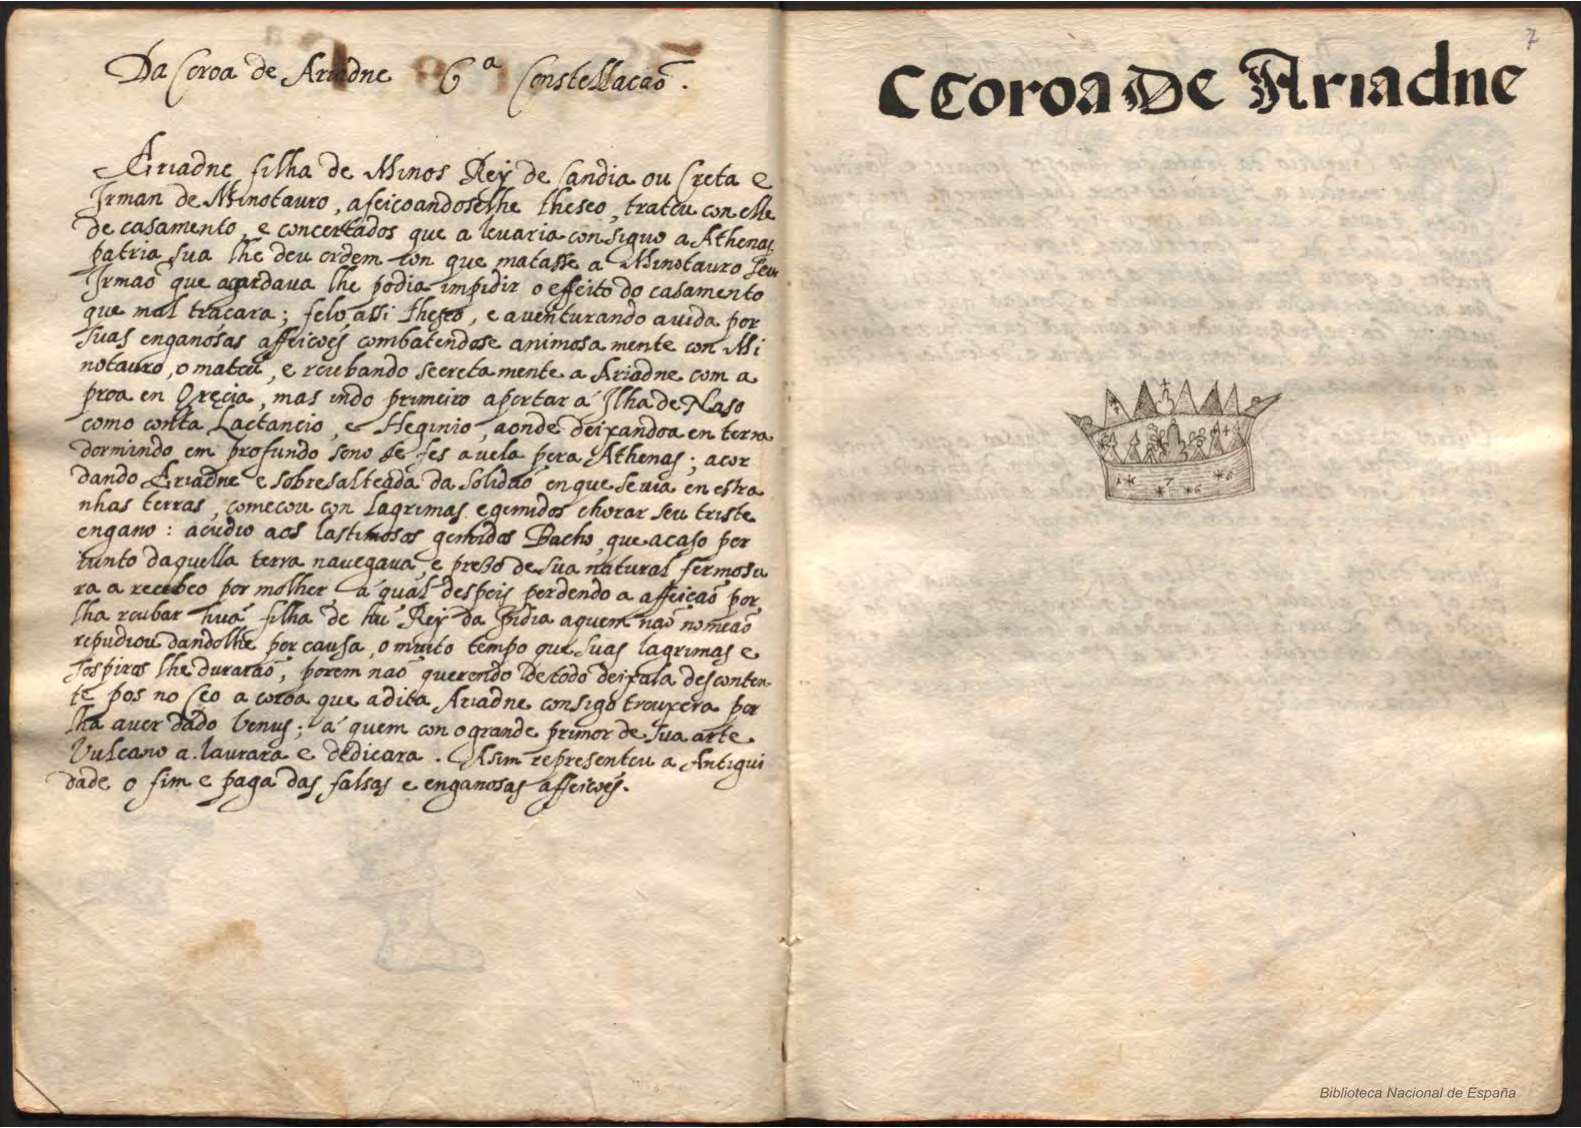 Da Coroa de Ariadne 6ª Constellacaõ.
Ariadne filha de Minos Rey de Candia ou Creta e
Irman de Minotauro, afeicoandoselhe theseo, tratou con elle
de casamento, e concertados que a levaria consiguo a Athenas
patria sua lhe deu ordem con que matasse a Minotauro seu
Irmaõ que agardava lhe podia impidir o effeito do casamento
que mal tracara; felo assi theseo, e aventurando a vida por
suas enganosas affeicoẽs combatendose animosa mente con Mi
notauro, o matou, e roubando secreta mente a Ariadne com a
proa en Grecia, mas indo primeiro aportar á Ilha de Naso
como conta Lactancio, e Heginio, aonde deixandoa en terra
dormindo em profundo sono se fes a vela pera Athenas; acor
dando Ariadne e sobresalteada da solidaõ en que se via en estra
nhas terras, comecou con lagrimas e gemidos chorar seu triste
engano: acudio aos lastimosos gemidos Bacho, que acaso por
iunto daquella terra navegava, e preso de sua natural fermosu
ra a recebeo por molher á qual despois perdendo a affeicaõ por
lha roubar huã filha de hũ Rey da India a quem naõ nomeaõ
repudiou dandolhe por causa, o muito tempo que suas lagrimas e
sospiros lhe duraraõ, porem naõ querendo de todo deixala desconten
te pos no Ceo a coroa que a dita Ariadne consigo trouxera por
lha aver dado Venus; á quem con o grande primor de sua arte
Vulcano a laurara e dedicara. Asim representou a Antigui
dade o fim e paga das falsas e enganosas affeicoẽs.
7
CCoroa De Ariadne
Biblioteca Nacional de España